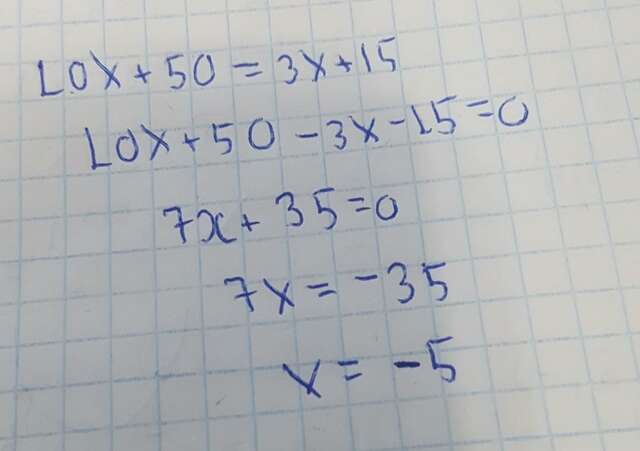 10x + 50 = 3x + 15
10x + 50 - 3x - 15 = 0
7x + 35 = 0
7x = -35
x = -5